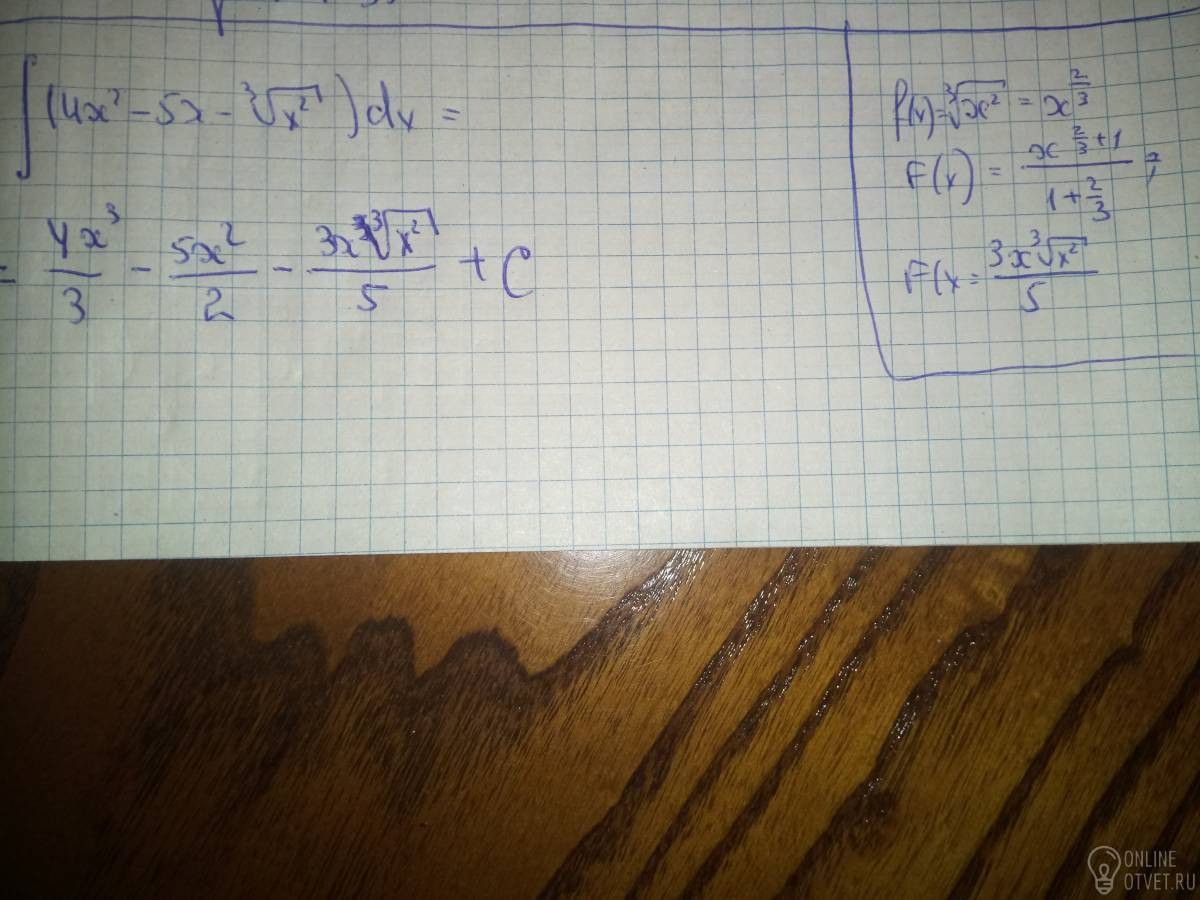 ∫(4x² - 5x - ∛x²)dx =
= 4x³/3 - 5x²/2 - 3x∛x²/5 + C
f(x) = ∛x² = x^(2/3)
F(x) = x^(2/3+1)/(1+2/3) ;
F(x = 3x∛x²/5
ONLINE
OTVET.RU